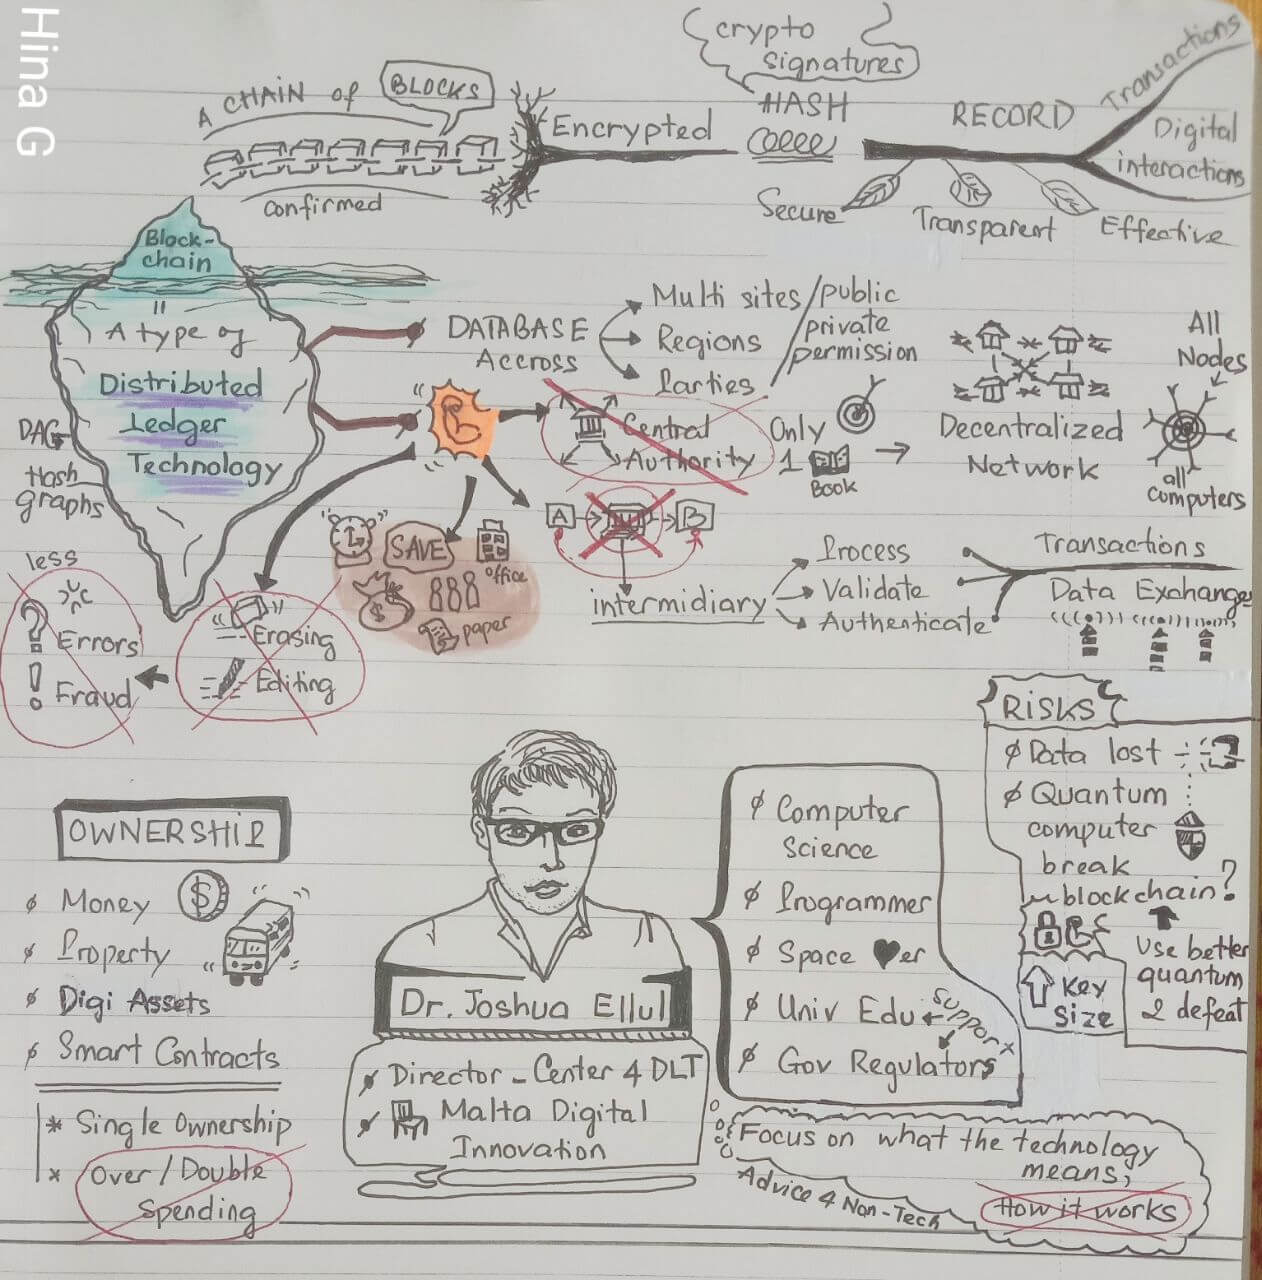 Hina G
crypto
signatures
A CHAIN of BLOCKS
Encrypted
HASH
RECORD
Transactions
Digital
interactions
confirmed
Secure
Transparent
Effective
Block-
chain
=
A type of
Distributed
Ledger
Technology
DAG
Hash
graphs
DATABASE
Accross
Multi sites
Regions
Parties
/public
private
permission
Central
Authority
Only
1
Book
Decentralized
Network
All
Nodes
all
computers
A
B
intermidiary
Process
Validate
Authenticate
Transactions
Data Exchange
SAVE
office
888
$
paper
less
? Errors
! Fraud
Erasing
Editing
RISKS
Data lost
Quantum
computer
break
blockchain?
Key
Size
Use better
quantum
2 defeat
OWNERSHIP
Money
$
Property
Digi Assets
Smart Contracts
* Single Ownership
* Over/Double
Spending
Dr. Joshua Ellul
Director - Center 4 DLT
Malta Digital
Innovation
Computer
Science
Programmer
Space ♥er
Univ Edu
support
Gov Regulators
Focus on what the technology
means,
How it works
Advice 4 Non-Tech